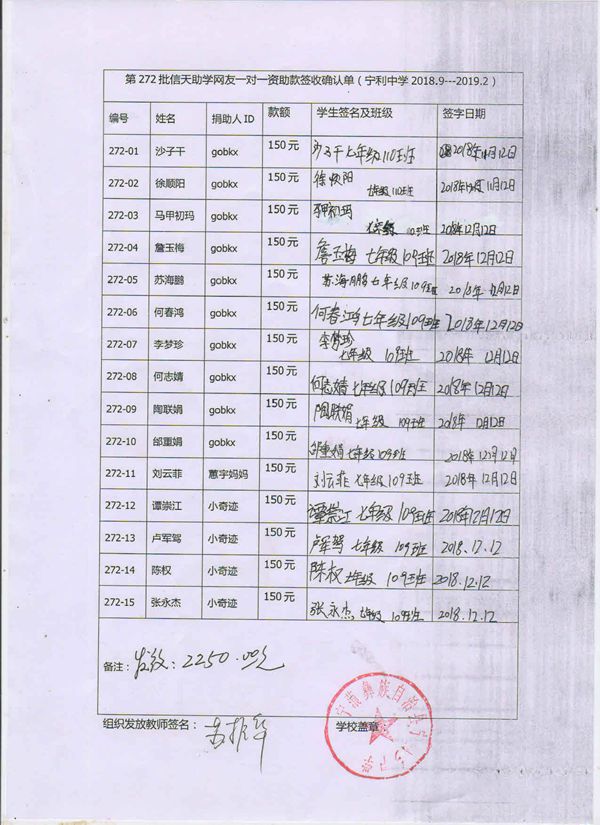 第 272 批信天助学网友一对一资助款签收确认单（宁利中学 2018.9---2019.2）
编号 姓名 捐助人 ID 款额 学生签名及班级 签字日期
272-01 沙子干 gobkx 150 元 沙子干 七年级 110班 2018年12月12日
272-02 徐顺阳 gobkx 150 元 徐顺阳 七年级 110班 2018年 12月12日
272-03 马甲初玛 gobkx 150 元 110班 2018年12月12日
272-04 詹玉梅 gobkx 150 元 詹玉梅 七年级 109班 2018年12月12日
272-05 苏海鹏 gobkx 150 元 苏海鹏 七年级 109班 2018年 12月12日
272-06 何春鸿 gobkx 150 元 何春鸿 七年级 109班 2018年12月12日
272-07 李梦珍 gobkx 150 元 李梦珍 七年级 109班 2018年 12月12日
272-08 何志婧 gobkx 150 元 何志婧 七年级 109班 2018年12月12日
272-09 陶联娟 gobkx 150 元 陶联娟 七年级 109班 2018年 12月12日
272-10 邰重娟 gobkx 150 元 邰重娟 七年级 109班 2018年 12月12日
272-11 刘云菲 蕙宇妈妈 150 元 刘云菲 七年级 109班 2018年 12月12日
272-12 谭崇江 小奇迹 150 元 谭崇江 七年级 109班 2018年12月12日
272-13 卢军驾 小奇迹 150 元 卢军驾 七年级 109班 2018.12.12
272-14 陈权 小奇迹 150 元 陈权 七年级 109班 2018.12.12
272-15 张永杰 小奇迹 150 元 张永杰 七年级 109班 2018.12.12
备注： 发放：2250.00元
组织发放教师签名： 学校盖章
彝族自治县宁利中学